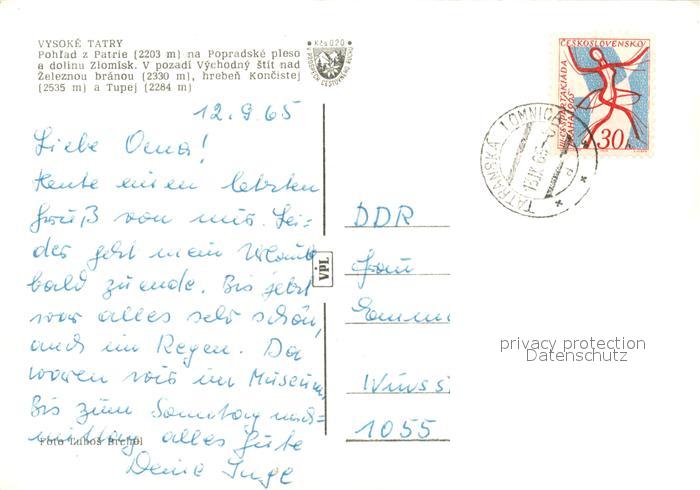 VYSOKÉ TATRY
Pohľad z Patrie (2203 m) na Popradské pleso
a dolinu Zlomísk. V pozadí Východný štít nad
Železnou bránou (2330 m), hrebeň Končistej
(2535 m) a Tupej (2284 m)
Kčs 0,20
ČESKOSLOVENSKO
PRAHA 1965
30
TATRANSKÁ LOMNICA
12.9.65
Liebe Oma!
Heute einen letzten
Gruß von mir. Lei=
der geht mein Urlaub
bald zuende. Bis jetzt
war alles sehr schön,
auch im Regen. Da
waren wir im Museum.
Bis zum Sonntag nach=
mittag alles Gute
Deine Inge
VPL
DDR
Frau
1055
Foto Ľuboš Brchel
privacy protection
Datenschutz